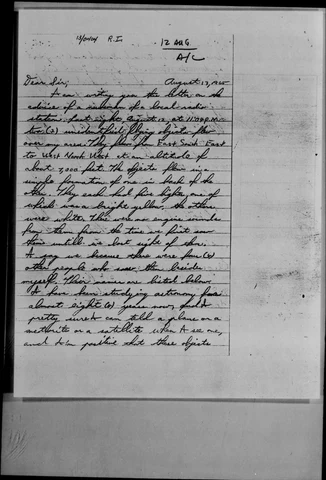 R.I.
12 AUG
A/C
Dear Sir, August 13, 1965
I am writing you this letter on the
advice of a of a local radio
station. Last night, August 12, at 11:20 P.M.
two (2) unidentified flying objects flew
over my area. They flew from East South East
to West North West at an altitude of
about 7,000 feet. The objects flew in a
single formation of one in back of the
other. They each had five lights, one of
which was a bright yellow, the others
were white. There was no engine sounds
from them from the time we first saw
them untill we lost sight of them.
I say we because there were four (4)
other people who saw them besides
myself. Their names are listed below.
I have been studying astronomy for
almost eight (8) years now, and I'm
pretty sure I can tell a plane or a
meteorite or a satellite when I see one,
and I'm positive that these objects